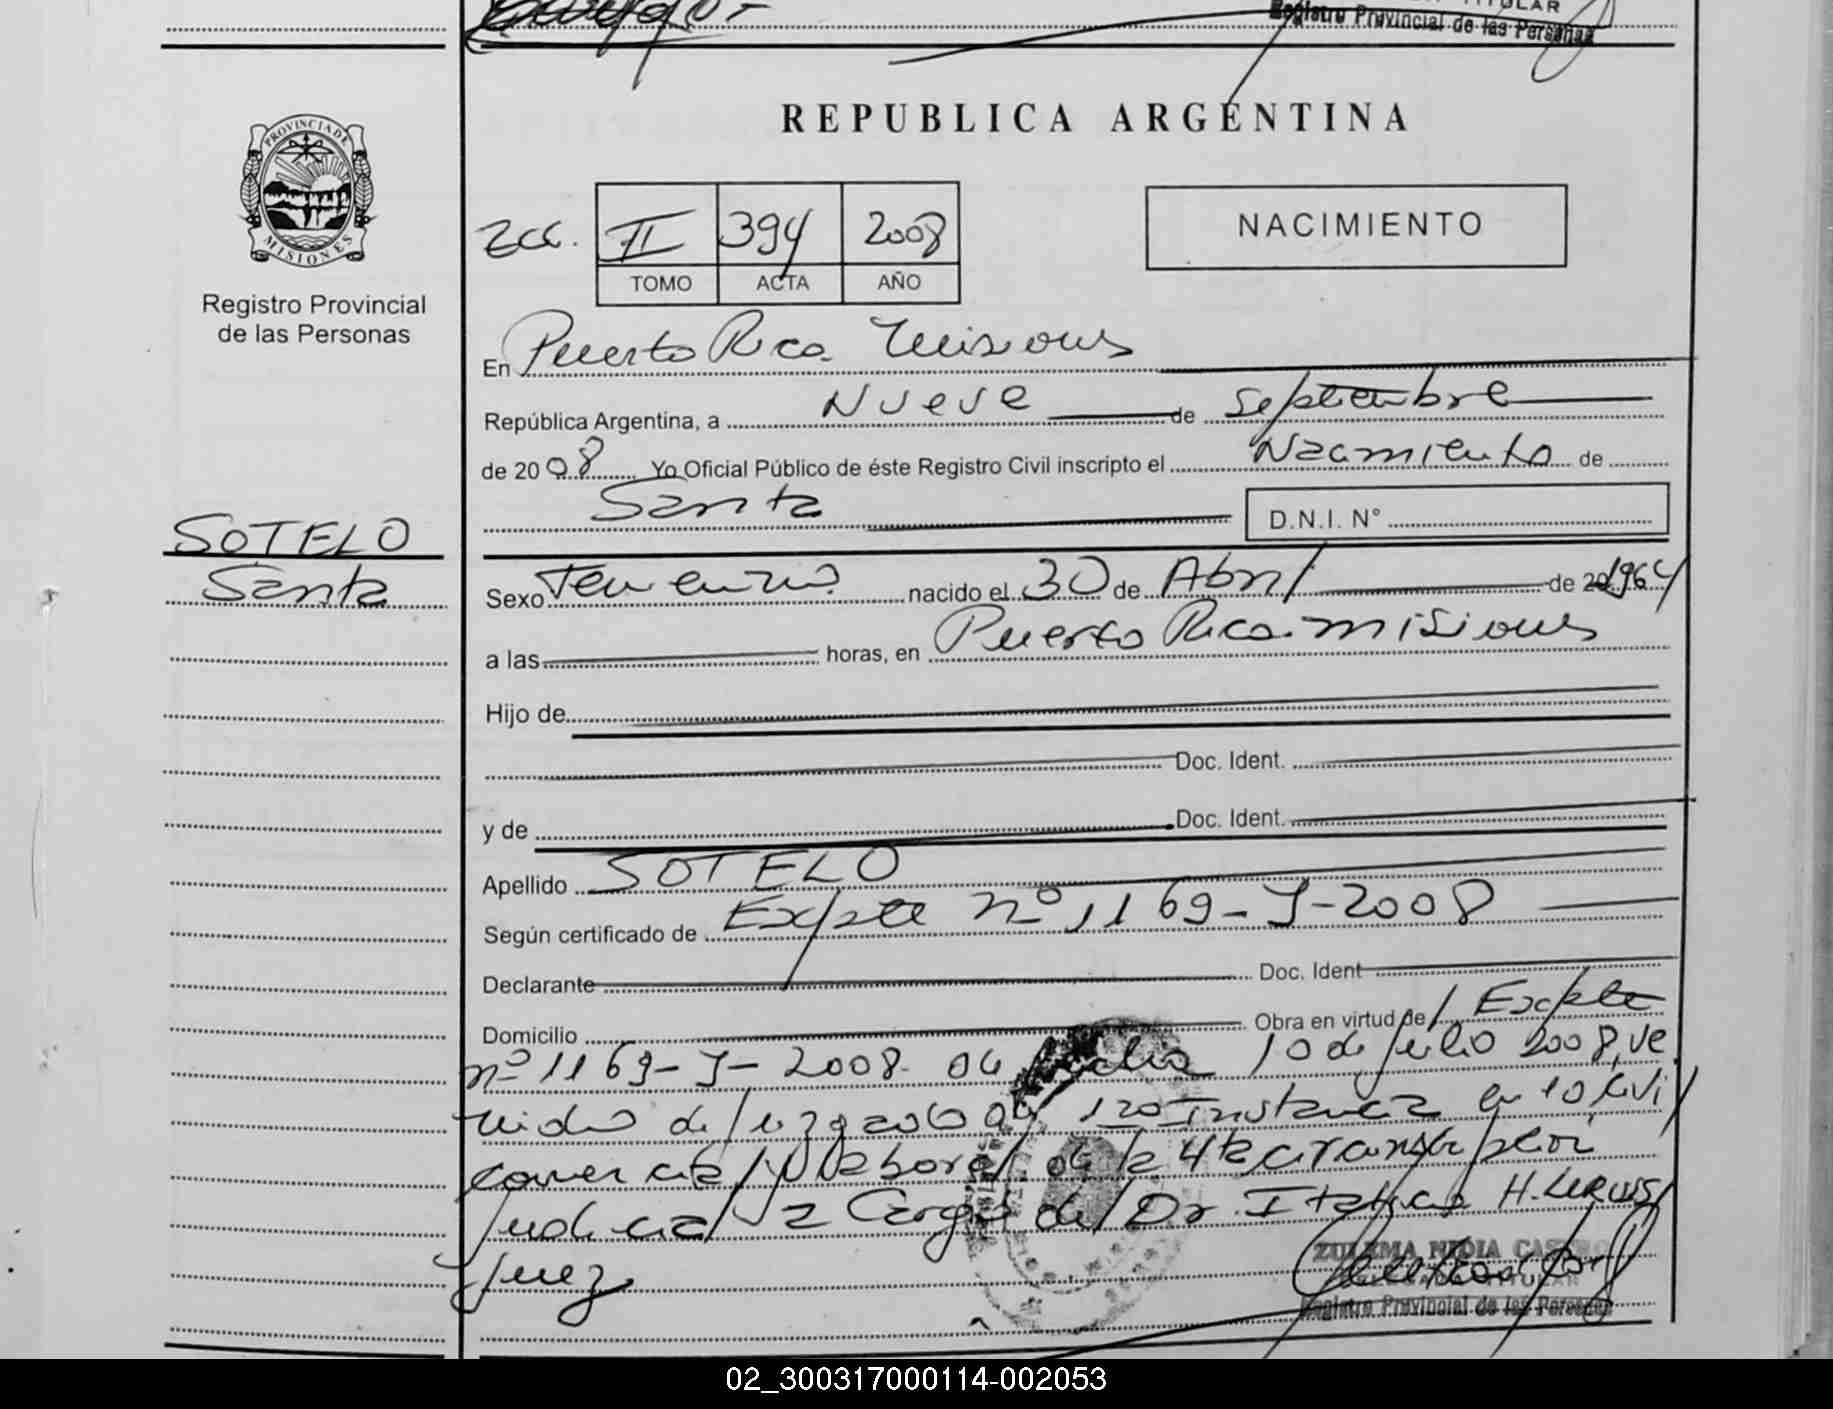 TITULAR
Registro Provincial de las Personas
PROVINCIA DE
MISIONES
Registro Provincial
de las Personas
REPUBLICA ARGENTINA
II 394 2008
TOMO ACTA AÑO
NACIMIENTO
En Puerto Rico Misiones
República Argentina, a Nueve de Septiembre
de 2008 Yo Oficial Público de éste Registro Civil inscripto el Nacimiento de
Santa
D.N.I. N°
SOTELO
Santa
Sexo Femenino nacido el 30 de Abril de 20 1964
a las horas, en Puerto Rico. misiones
Hijo de
Doc. Ident.
y de Doc. Ident.
Apellido SOTELO
Según certificado de Expte nº 1169-J-2008
Declarante Doc. Ident
Domicilio Obra en virtud de Expte
nº 1169-J-2008. de fecha 10 de julio 2008, ve
nido de juzgado de 1ra Instancia en lo civil
comercial y laboral de la 4ta circunscripcion
judicial a cargo del Dr. Italico H.
juez
ZULEMA NIDIA CASTRO
DELEGADA TITULAR
Registro Provincial de las Personas
02_300317000114-002053